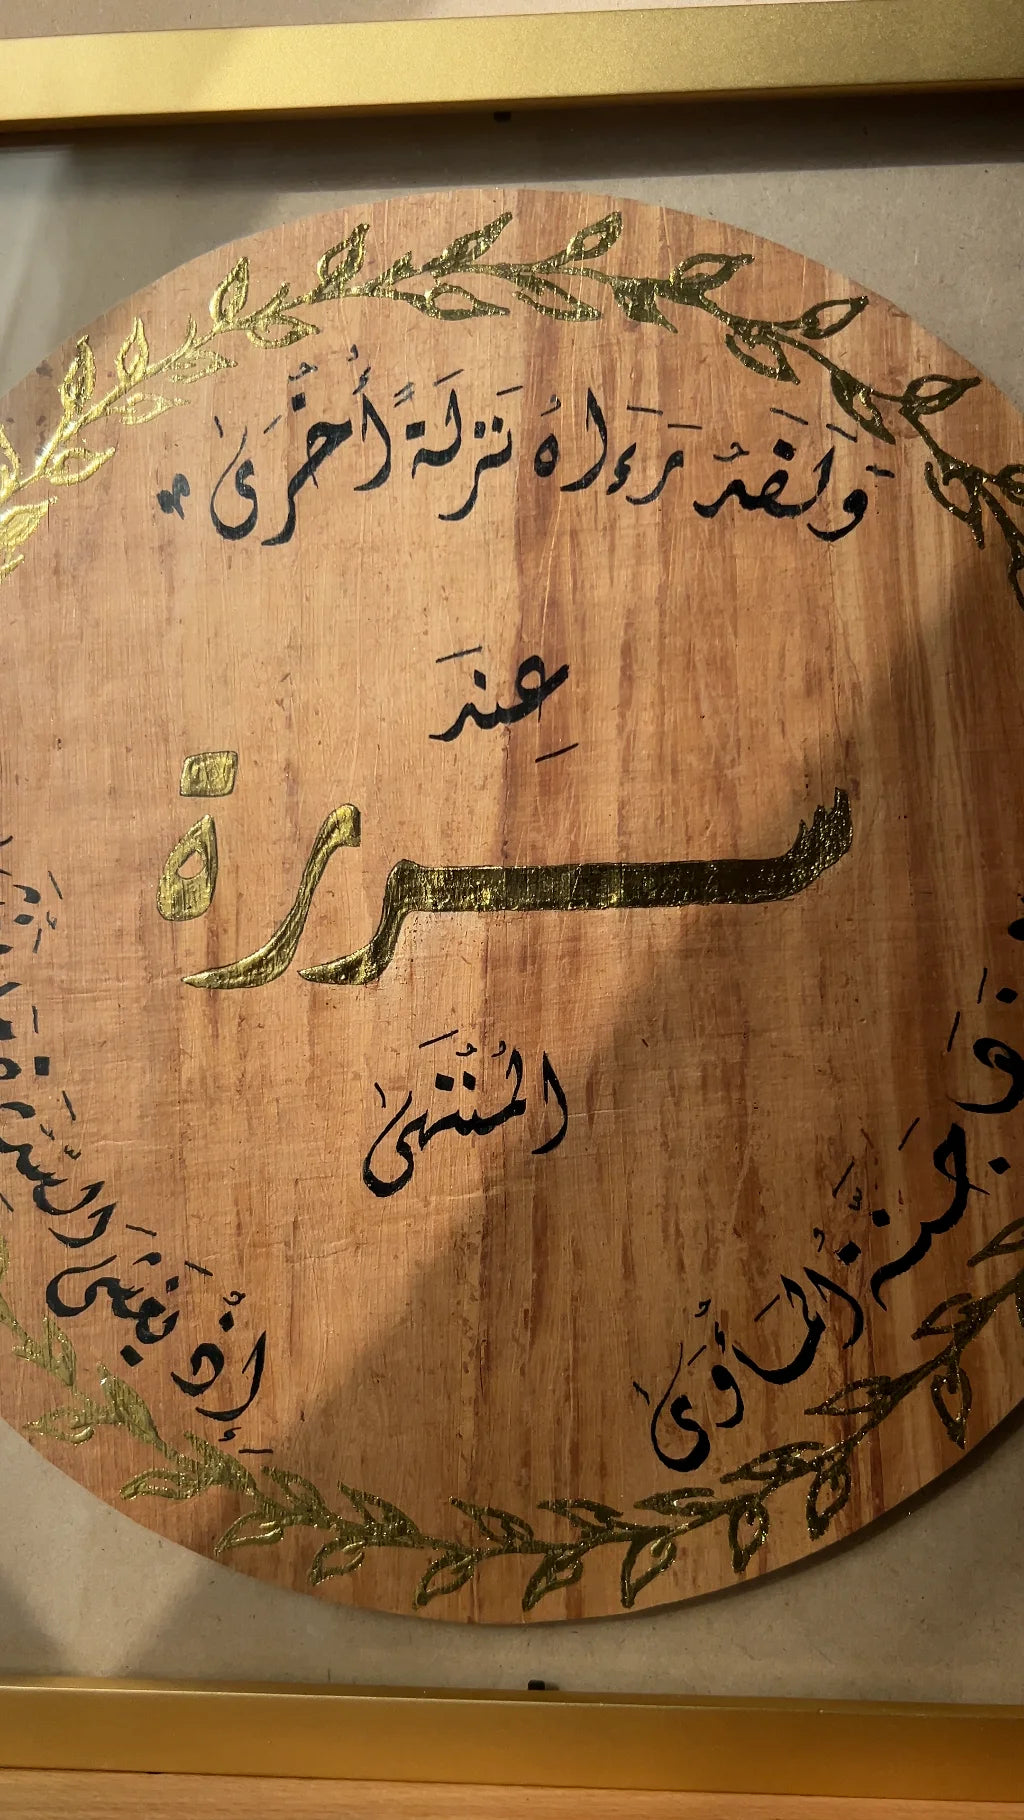 وَلَقَدْ رَءَاهُ نَزلَةً أُخْرَىٰ
عِندَ
سدرة
الْمُنتَهَىٰ
جَنَّةُ الْمَأْوَىٰ
إِذْ يَغْشَى السِّدْرَةَ